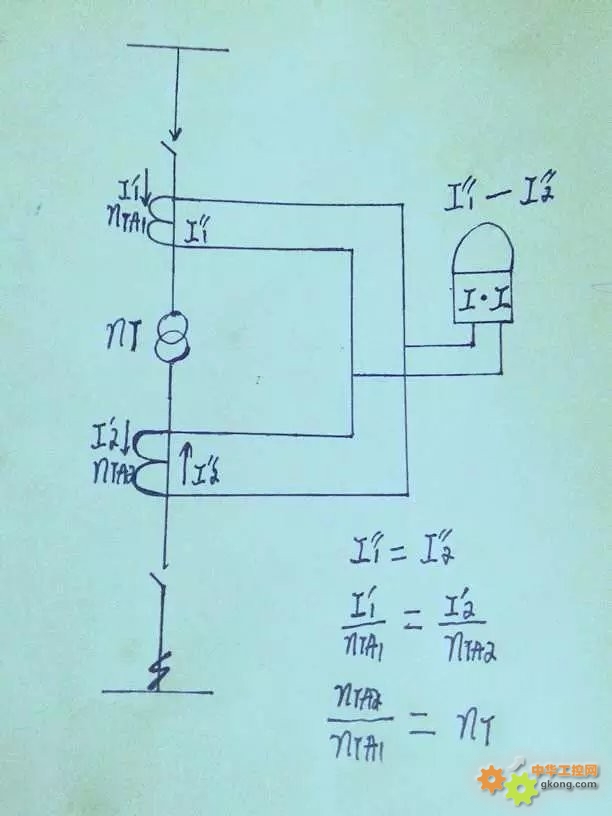 I'1
nTA1
I"1
I"1 — I"2
I·I
nT
I'2
nTA2
I"2
I"1 = I"2
I'1/nTA1 = I'2/nTA2
nTA2/nTA1 = nT
中华工控网
gkong.com